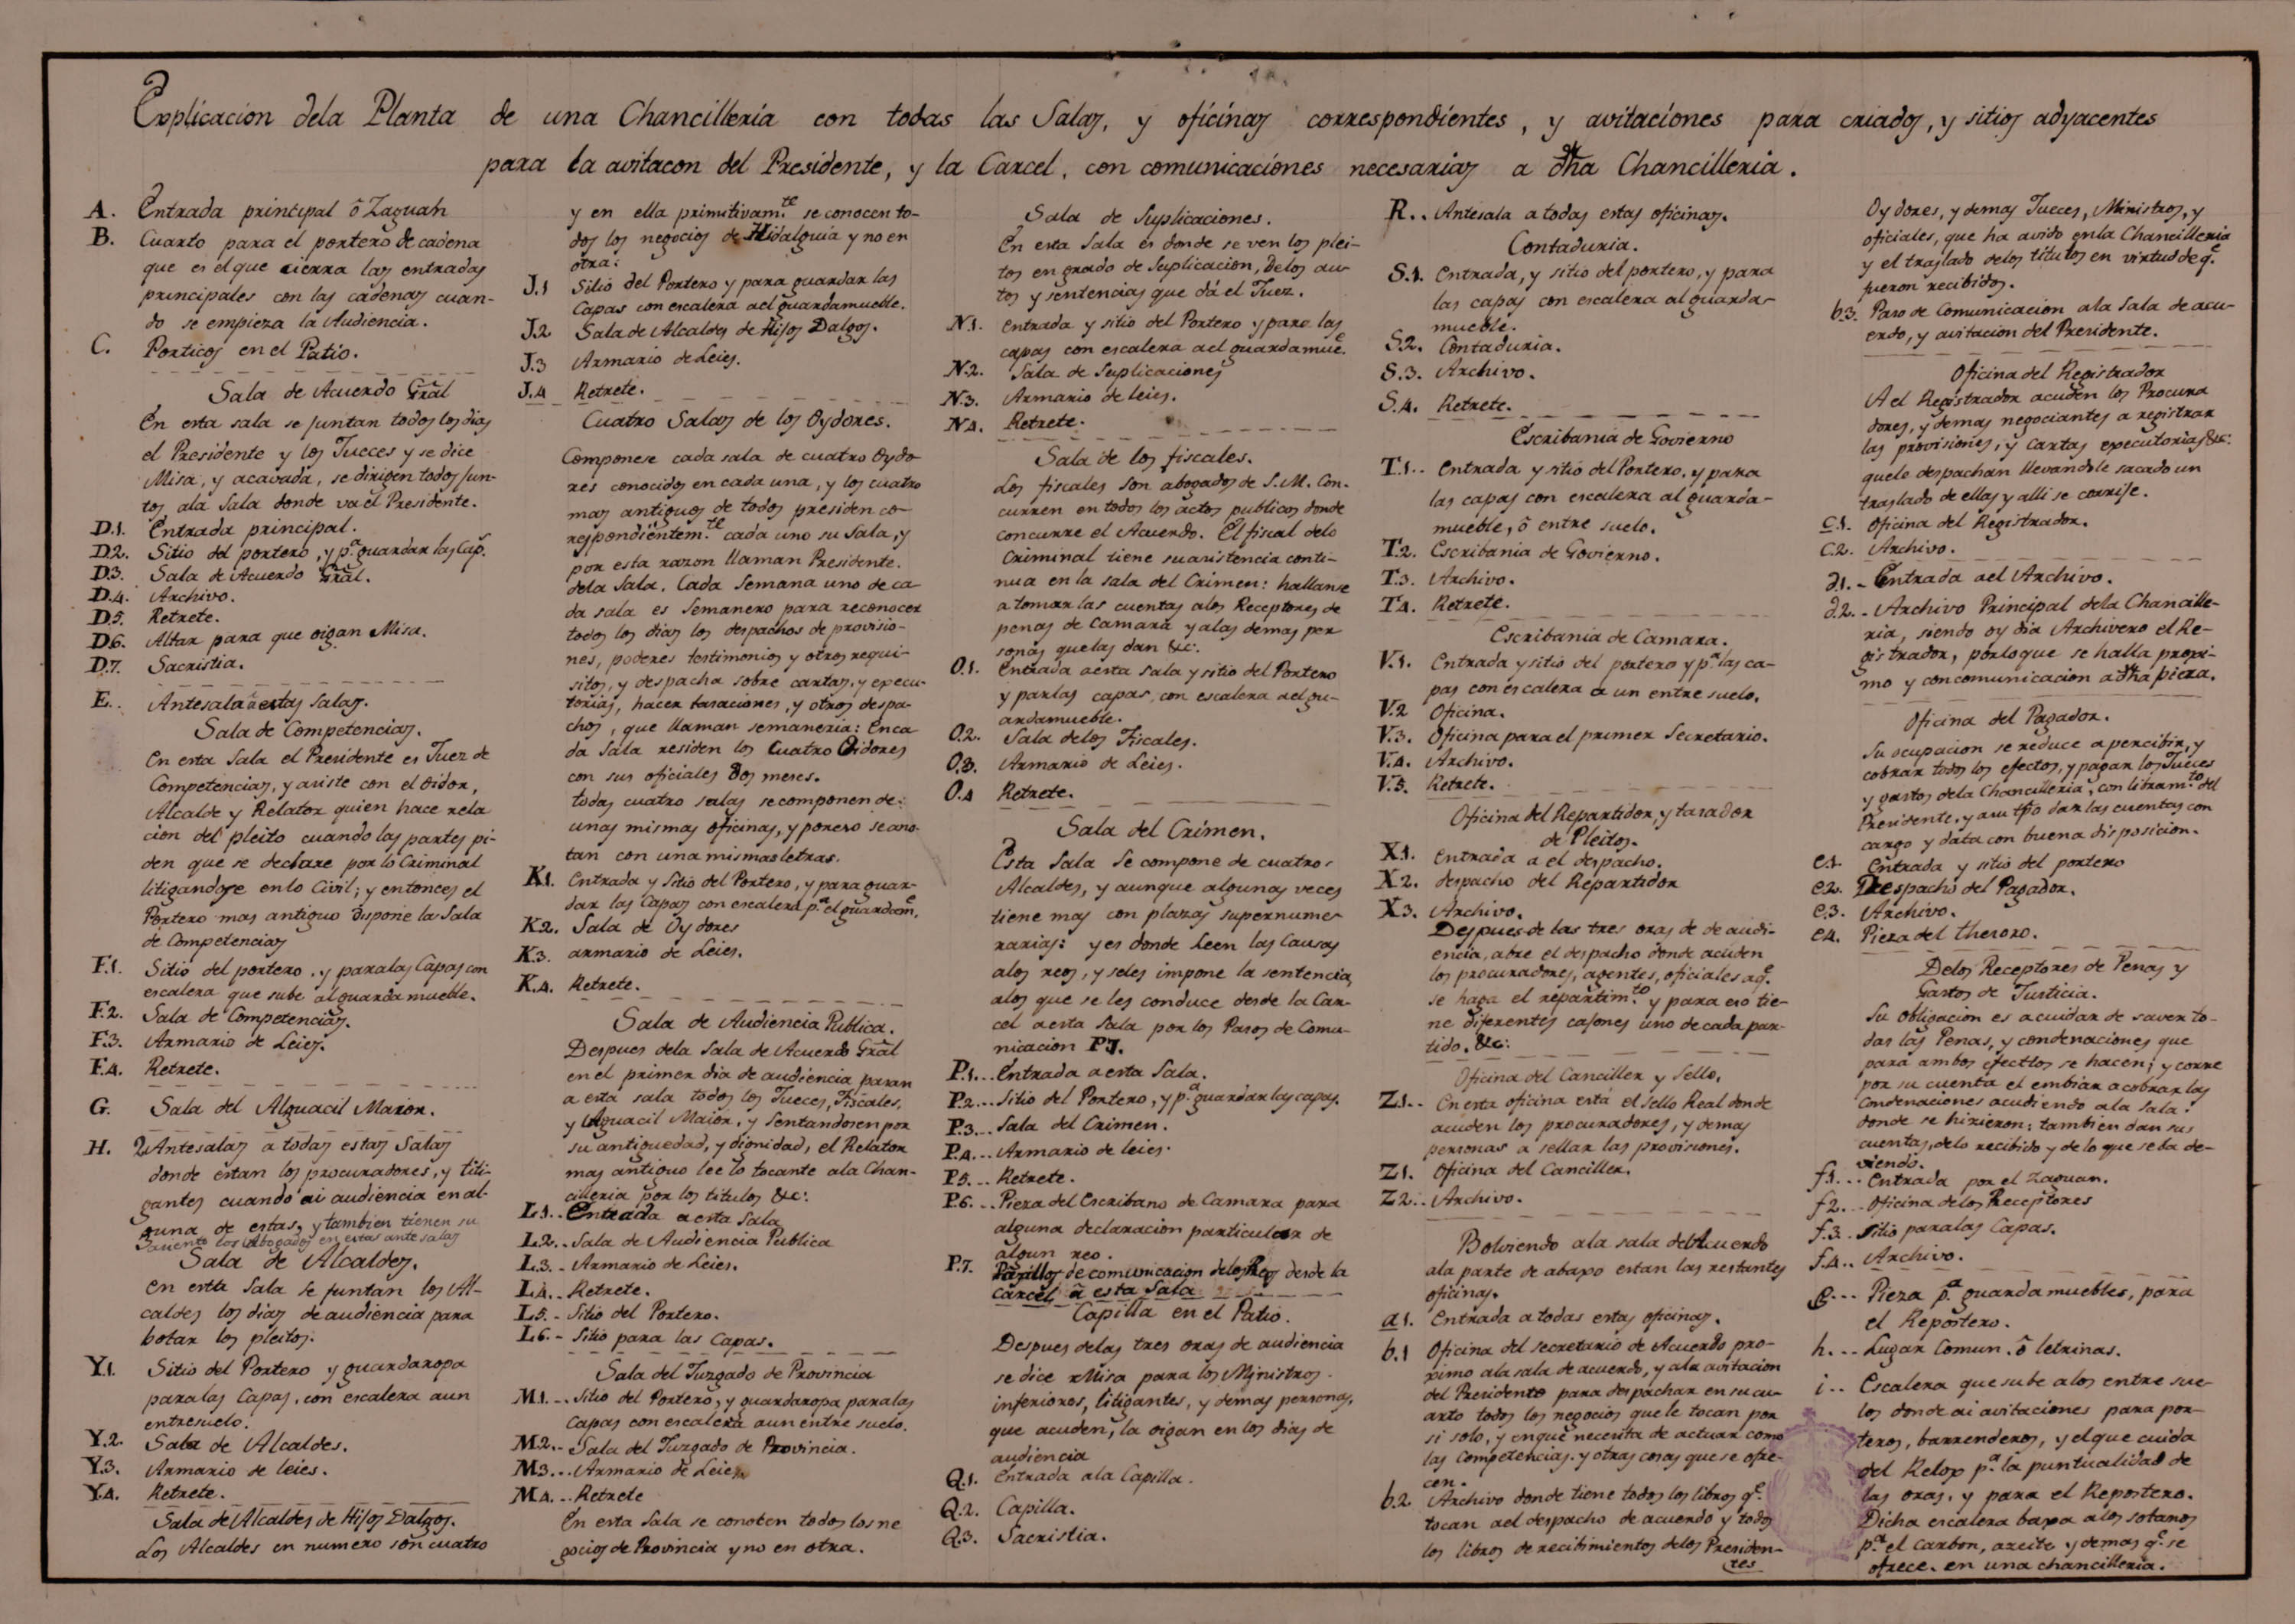 Explicacion dela Planta de una Chancilleria con todas las Salas, y oficinas correspondientes, y avitaciones para criados, y sitios adyacentes
para la avitacon del Presidente, y la Carcel, con comunicaciones necesarias a dha Chancilleria.
A. Entrada principal ô Zaguan
B. Cuarto para el portero de cadena
que es el que cierra las entradas
principales con las cadenas cuan-
do se empieza la Audiencia.
C. Porticos en el Patio.
Sala de Acuerdo Gral
En esta sala se juntan todos los dias
el Presidente y los Jueces y se dice
Misa, y acavada, se dirigen todos jun-
tos ala Sala donde va el Presidente.
D.1. Entrada principal.
D.2. Sitio del portero, y pa guardar las Cap.
D.3. Sala de Acuerdo Gral.
D.4. Archivo.
D.5. Retrete.
D.6. Altar para que oigan Misa.
D.7. Sacristia.
E.. Antesala â estas Salas.
Sala de Competencias.
En esta Sala el Presidente es Juez de
Competencias, y asiste con el Oidor,
Alcalde y Relator quien hace rela
cion del pleito cuando las partes pi-
den que se declare por lo Criminal
litigandose en lo Civil; y entonces el
Portero mas antiguo dispone la Sala
de Competencias
F.1. Sitio del portero, y para las Capas con
escalera que sube al guarda mueble.
F.2. Sala de Competencias.
F.3. Armario de Leies.
F.4. Retrete.
G. Sala del Alguacil Maior.
H. 2 Antesalas a todas estas Salas
donde estan los procuradores, y liti-
gantes cuando ai audiencia en al-
guna de estas, y tambien tienen su
asiento los Abogados en estas ante salas
Sala de Alcaldes.
en esta Sala se juntan los Al-
caldes los dias de audiencia para
botar los pleitos.
Y.1. Sitio del Portero y guardaropa
para las Capas, con escalera a un
entresuelo.
Y.2. Sala de Alcaldes.
Y.3. Armario de leies.
Y.4. Retrete.
Sala de Alcaldes de Hijos Dalgos.
Los Alcaldes en numero son cuatro
y en ella primitivamte se conocen to-
dos los negocios de Hidalguia y no en
otra:
J.1 Sitio del Portero y para guardar las
Capas con escalera ael guardamueble.
J.2 Sala de Alcaldes de Hijos Dalgos.
J.3 Armario de Leies.
J.4 Retrete.
Cuatro Salas de los Oydores.
Componese cada sala de cuatro Oydo
res conocidos en cada una, y los cuatro
mas antiguos de todos presiden co-
respondientemte cada uno su Sala, y
por esta razon llaman Presidente.
dela Sala. Cada Semana uno de ca-
da sala es Semanero para reconocer
todos los dias los despachos de provisio-
nes, poderes testimonios y otros requi-
sitos, y despacha sobre cartas, y execu-
torias, hacer tasaciones, y otros despa-
chos, que llaman semaneria: En ca
da Sala residen los Cuatro Oidores
con sus oficiales dos meses.
todas cuatro salas se componen de
unas mismas oficinas, y por eso se ano-
tan con una mismas letras.
K1. Entrada y Sitio del Portero, y para guar-
dar las Capas con escalera pa el guardame.
K2. Sala de Oydores
K3. armario de Leies.
K.4. Retrete.
Sala de Audiencia Publica.
Despues dela Sala de Acuerdo Gral
en el primer dia de audiencia pasan
a esta sala todos los Jueces, Fiscales,
y Alguacil Maior, y Sentandosen por
su antiguedad, y dignidad, el Relator
mas antiguo lee lo tocante ala Chan-
cilleria por los titulos &c:
L1.. Entrada a esta Sala
L.2.. Sala de Audiencia Publica
L.3.- Armario de Leies.
L4.. Retrete.
L5.- Sitio del Portero.
L6.- Sitio para las Capas.
Sala del Juzgado de Provincia
M1.-. Sitio del Portero, y guardaropa para las
Capas con escalera a un entre suelo.
M2.- Sala del Juzgado de Provincia.
M3... Armario de Leies
M4... Retrete
En esta Sala se conocen todos los ne
gocios de Provincia y no en otra.
Sala de Suplicaciones.
En esta Sala es donde se ven los plei-
tos en grado de Suplicacion, Delos au-
tos y sentencias que dá el Juez.
N.1. entrada y sitio del Portero y para las
capas con escalera ael guardamue.
N.2. Sala de Suplicaciones
N.3. Armario de leies.
N4. Retrete.
Sala de los fiscales.
Los fiscales son abogados de S.M. Con-
curren en todos los actos publicos donde
concurre el Acuerdo. El fiscal delo
Criminal tiene su asistencia conti-
nua en la sala del Crimen: hallanse
a tomar las cuentas alos Receptores de
penas de Camara y alas demas per
sonas que las dan &c.
O.1. Entrada a esta Sala y sitio del Portero
y par las capas, con escalera ael gu-
ardamueble.
O.2. Sala delos Fiscales.
O.3. Armario de Leies.
O.4 Retrete.
Sala del Crimen.
Esta Sala Se compone de cuatro
Alcaldes, y aunque algunas veces
tiene mas con plazas supernume-
rarias: y es donde Leen las Causas
alos reos, y seles impone la sentencia,
alos que se les conduce desde la Car-
cel a esta Sala por los Pasos de Comu-
nicacion P7.
P.1... Entrada a esta Sala.
P.2... Sitio del Portero, y pa guardar las capas.
P.3... Sala del Crimen.
P.4... Armario de leies.
P5... Retrete.
P.6... Pieza del Escribano de Camara para
alguna declaracion particular de
algun reo.
P.7. Pasillos de comunicacion delos Reos desde la
Carcel â esta Sala
Capilla en el Patio.
Despues delas tres oras de audiencia
se dice Misa para los Ministros
inferiores, litigantes, y demas personas,
que acuden, la oigan en los dias de
audiencia
Q.1. Entrada ala Capilla.
Q.2. Capilla.
Q.3. Sacristia.
R.. Antesala a todas estas oficinas.
Contaduria.
S.1. Entrada, y sitio del portero, y para
las capas con escalera al guarda-
mueble.
S.2. Contaduria.
S.3. Archivo.
S.4. Retrete.
Escribania de Govierno
T.1.. Entrada y sitio del Portero, y para
las capas con escalera al guarda-
mueble, ô entre suelo.
T.2. Escribania de Govierno.
T.3. Archivo.
T4. Retrete.
Escribania de Camara.
V.1. Entrada y sitio del portero y pa las ca-
pas con escalera a un entre suelo.
V.2 Oficina.
V.3. Oficina para el primer Secretario.
V.4. Archivo.
V.5. Retrete.
Oficina del Repartidor y tasador
de Pleitos.
X1. Entrada a el despacho.
X2. despacho del Repartidor
X3. Archivo.
Despues de las tres oras de de audi-
encia, abre el despacho donde acuden
los procuradores, agentes, oficiales aqe.
se haga el repartimto y para eso tie-
ne diferentes cajones uno de cada par-
tido. &c:
Oficina del Canciller y Sello.
Z1.. En esta oficina está el Sello Real donde
acuden los procuradores, y demas
personas a sellar las provisiones.
Z1. Oficina del Canciller.
Z2.. Archivo.
Bolviendo ala sala del Acuerdo
ala parte de abaxo estan las restantes
oficinas.
a1. Entrada a todas estas oficinas.
b.1 Oficina del secretario de Acuerdo pro-
ximo ala sala de acuerdo, y ala avitacion
del Presidente para despachar en su cu-
arto todos los negocios que le tocan por
si solo, y en que necesita de actuar como
las Competencias, y otras cosas que se ofre-
cen.
b.2. Archivo donde tiene todos los libros qe.
tocan ael despacho de acuerdo y todos
los libros de recibimientos delos Presiden-
tes
Oydores, y demas Jueces, Ministros, y
oficiales, que ha avido enla Chancilleria
y el traslado delos titulos en virtud de qe.
fueron recibidos.
b.3. Paso de Comunicacion ala Sala de acu-
erdo, y avitacion del Presidente.
Oficina del Registrador
Ael Registrador acuden los Procura
dores, y demas negociantes a registrar
las provisiones, y cartas executorias &c:
quele despachan llevandole sacado un
traslado de ellas y alli se corrije.
c.1. Oficina del Registrador.
C.2. Archivo.
d1.- Entrada ael Archivo.
d.2.- Archivo Principal dela Chancille-
ria, siendo oy dia Archivero el Re-
gistrador, por lo que se halla proxi-
mo y con comunicacion adha pieza.
Oficina del Pagador.
Su ocupacion se reduce a percibir, y
cobrar todos los efectos, y pagar los Jueces
y gastos dela Chancilleria, con libramto del
Presidente, y asu tpo dar las cuentas con
cargo y data con buena disposicion.
e.1. Entrada y sitio del portero
e2. Despacho del Pagador.
e.3. Archivo.
e4. Pieza del thesoro.
Delos Receptores de Penas y
Gastos de Justicia.
Su obligacion es a cuidar de saver to-
das las Penas, y condenaciones que
para ambos efecttos se hacen; y corre
por su cuenta el embiar a cobrar las
Condenaciones acudiendo ala Sala
donde se hizieron; tambien dan sus
cuentas, delo recibido y de lo que se ba de-
viendo.
f.1... Entrada por el Zaguan.
f2... Oficina delos Receptores
f.3. Sitio para las Capas.
f.4.. Archivo.
g... Pieza pa guarda muebles, para
el Repostero.
h... Lugar Comun, ô letrinas.
i.. Escalera que sube alos entre sue-
los donde ai avitaciones para por-
teros, barrenderos, y el que cuida
del Relox pa la puntualidad de
las oras, y para el Repostero.
Dicha escalera baxa alos sotanos
pa el Carbon, azeite y demas qe se
ofrece en una chancilleria.